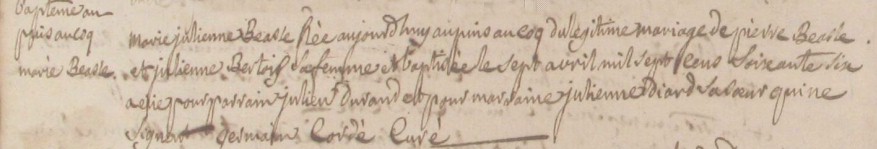 baptême au
puis au coq
marie Beasle.
marie julienne Beasle Née aujourd'huy au puis au coq du légitime mariage de pierre Beasle.
et julienne Bertois sa femme et baptisée le sept avril mil sept cens Soixante six
a eue pour parrain julien durand et pour marraine julienne diard sa sœur qui ne
signent germain Cordé Curé